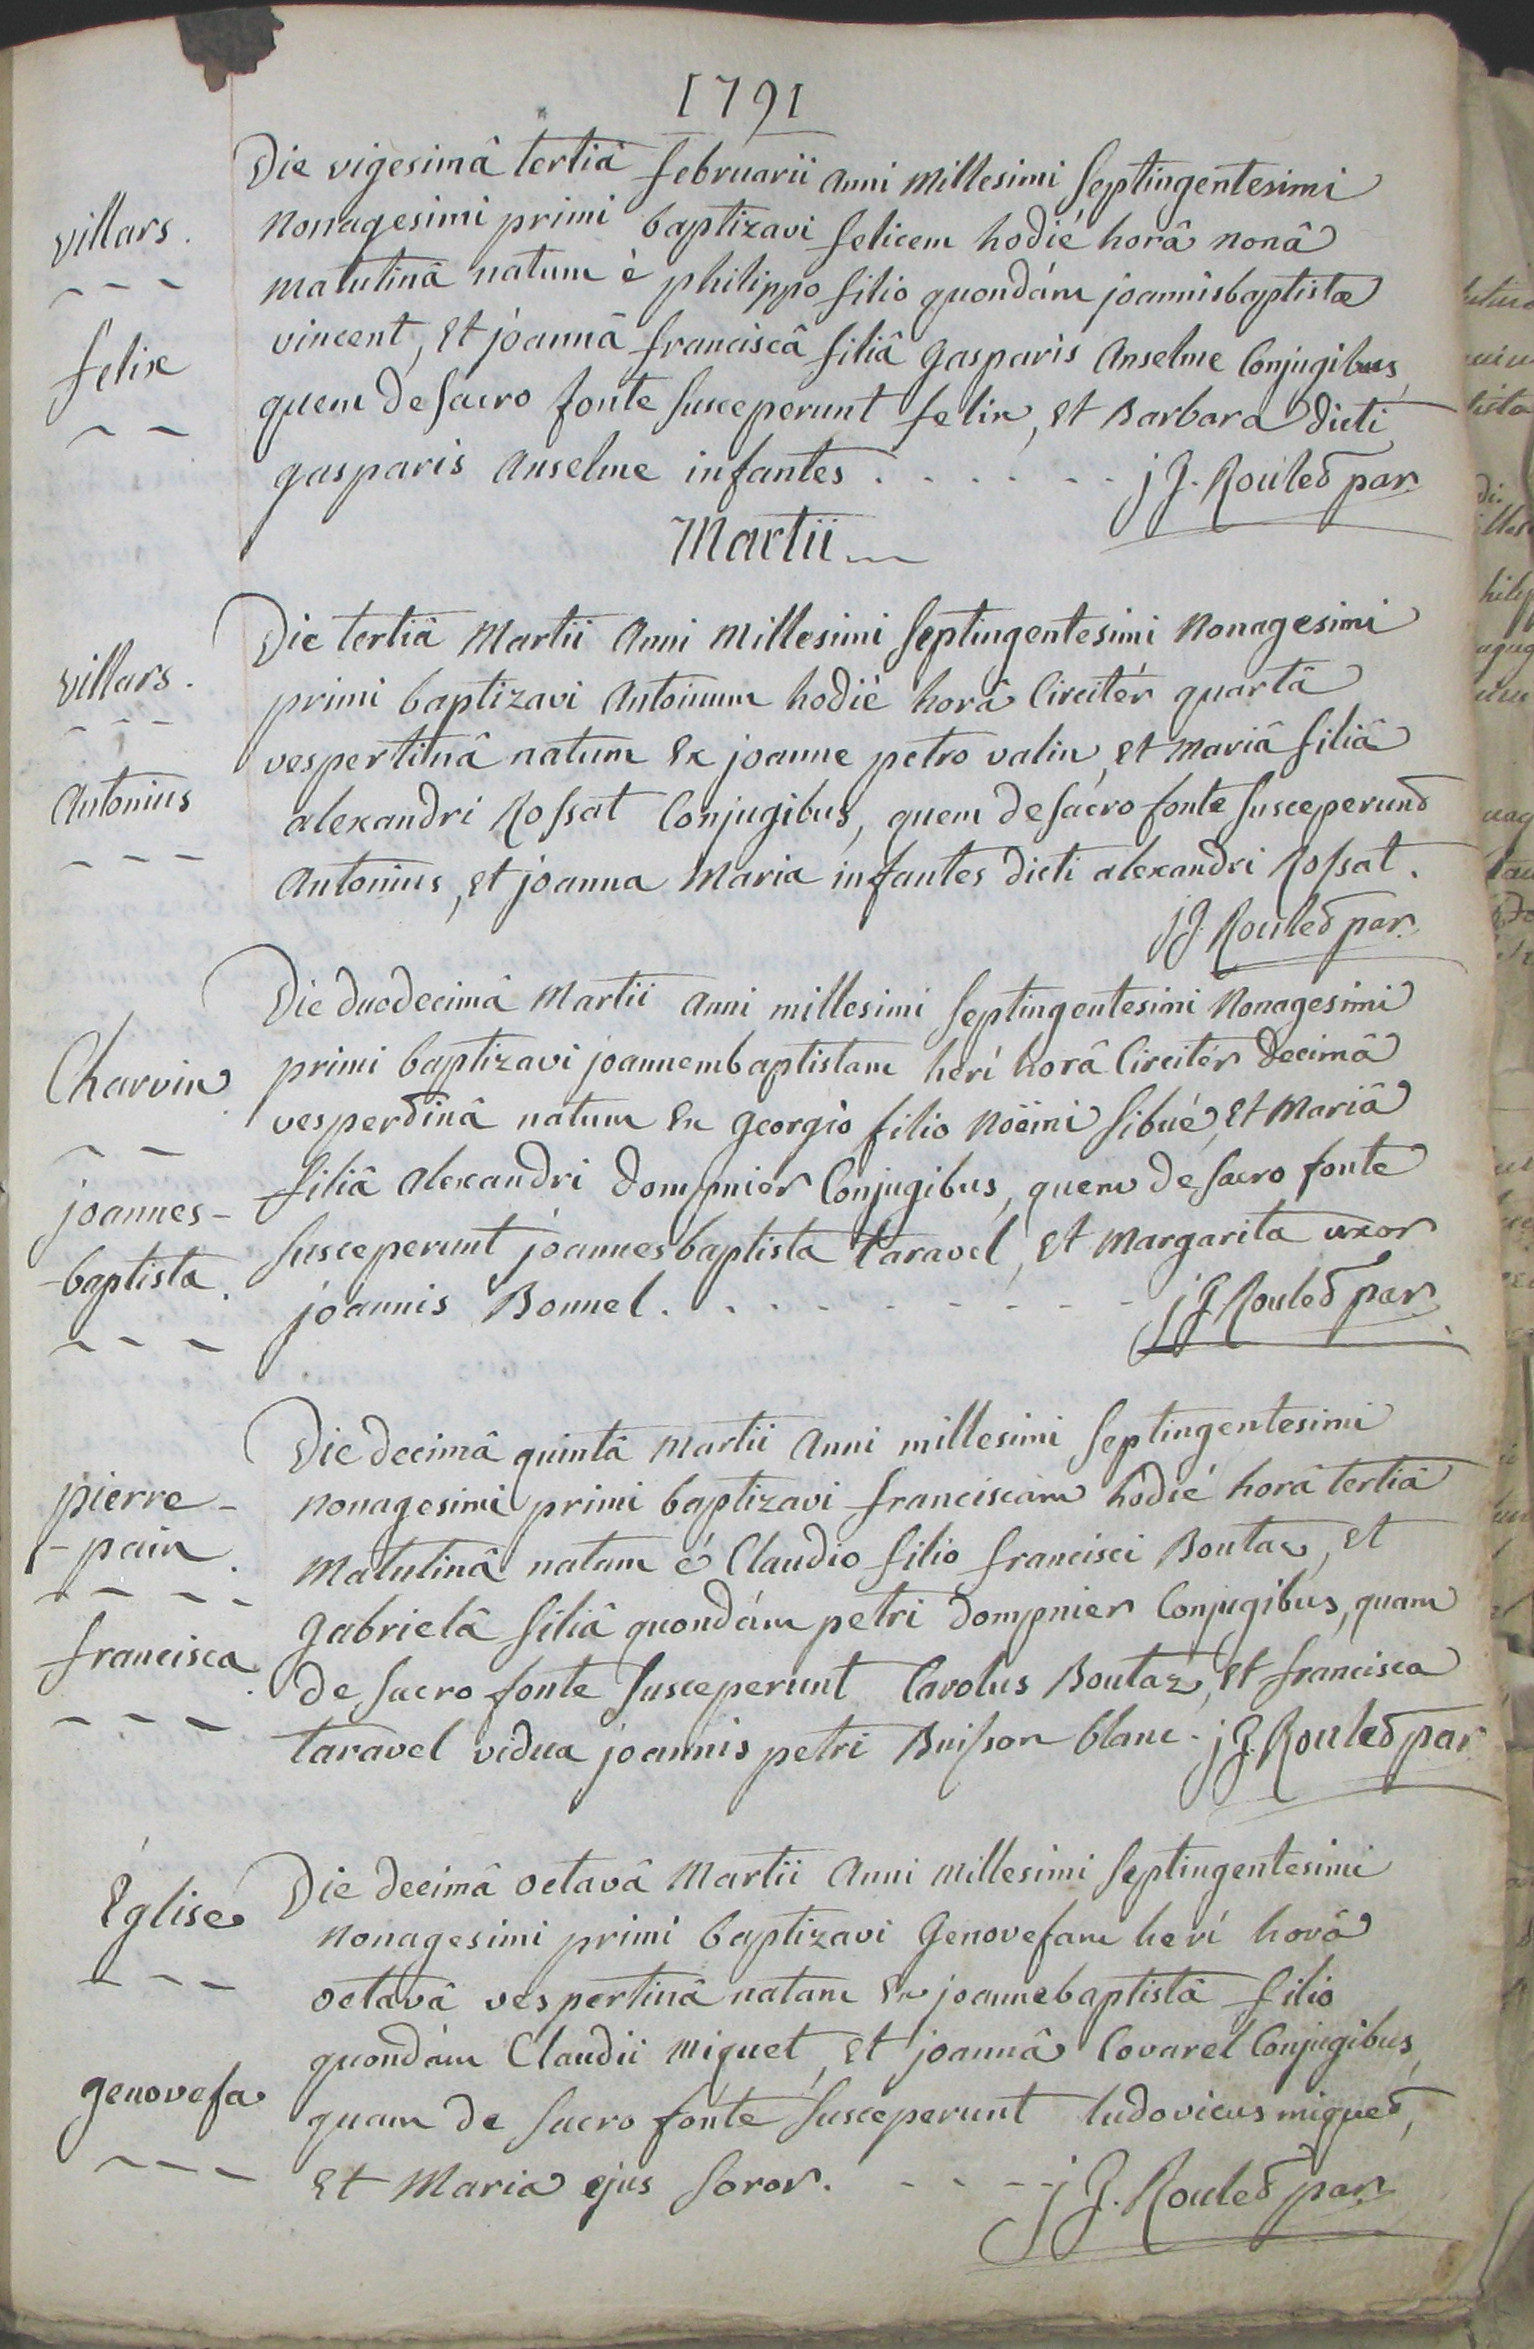 1791
Die vigesimâ tertiâ februarii anni millesimi septingentesimi
villars.
nonagesimi primi baptizavi felicem hodié horâ nonâ
matutinâ natum è philippo filio quondám joannisbaptistæ
felix
vincent, et joannâ franciscâ filiâ gasparis anselme conjugibus,
quem de sacro fonte susceperunt felix, et Barbara dicti
gasparis anselme infantes . . . . . . j J. Rouled par.
Martii
Die tertiâ martii anni millesimi septingentesimi nonagesimi
villars.
primi baptizavi antonium hodié horâ circitér quartâ
vespertinâ natum ex joanne petro valin, et mariâ filiâ
antonius
alexandri Rossat conjugibus, quem de sacro fonte susceperund
antonius, et joanna maria infantes dicti alexandri Rossat.
j J. Rouled par.
Die duodecimâ martii anni millesimi septingentesimi nonagesimi
Charvin
primi baptizavi joannembaptistam herí horâ circitér decimâ
vesperdinâ natum ex georgio filio noëmi sibué, et mariâ
joannes-
filiâ alexandri dompnier conjugibus, quem de sacro fonte
-baptista.
susceperunt joannesbaptista taravel, et margarita uxor
joannis Bonnel. . . . . . . . . j J Rouled par
Die decimâ quintâ martii anni millesimi septingentesimi
pierre-
nonagesimi primi baptizavi franciscam hodié horâ tertiâ
-pain.
matutinâ natam é claudio filio francisci Boutaz, et
gabrielâ filiâ quondám petri dompnier conjugibus, quam
francisca.
de sacro fonte susceperunt carolus Boutaz, et francisca
taravel vidua joannis petri Buisson blanc. j J. Rouled par
Église
Die decimâ octavâ martii anni millesimi septingentesimi
nonagesimi primi baptizavi genovefam herí horâ
octavâ vespertinâ natam ex joannebaptistâ filio
quondám claudii miquet, et joannâ covarel conjugibus,
genovefa
quam de sacro fonte susceperunt ludovicus miqued,
et maria ejus soror. - - - j J. Rouled par